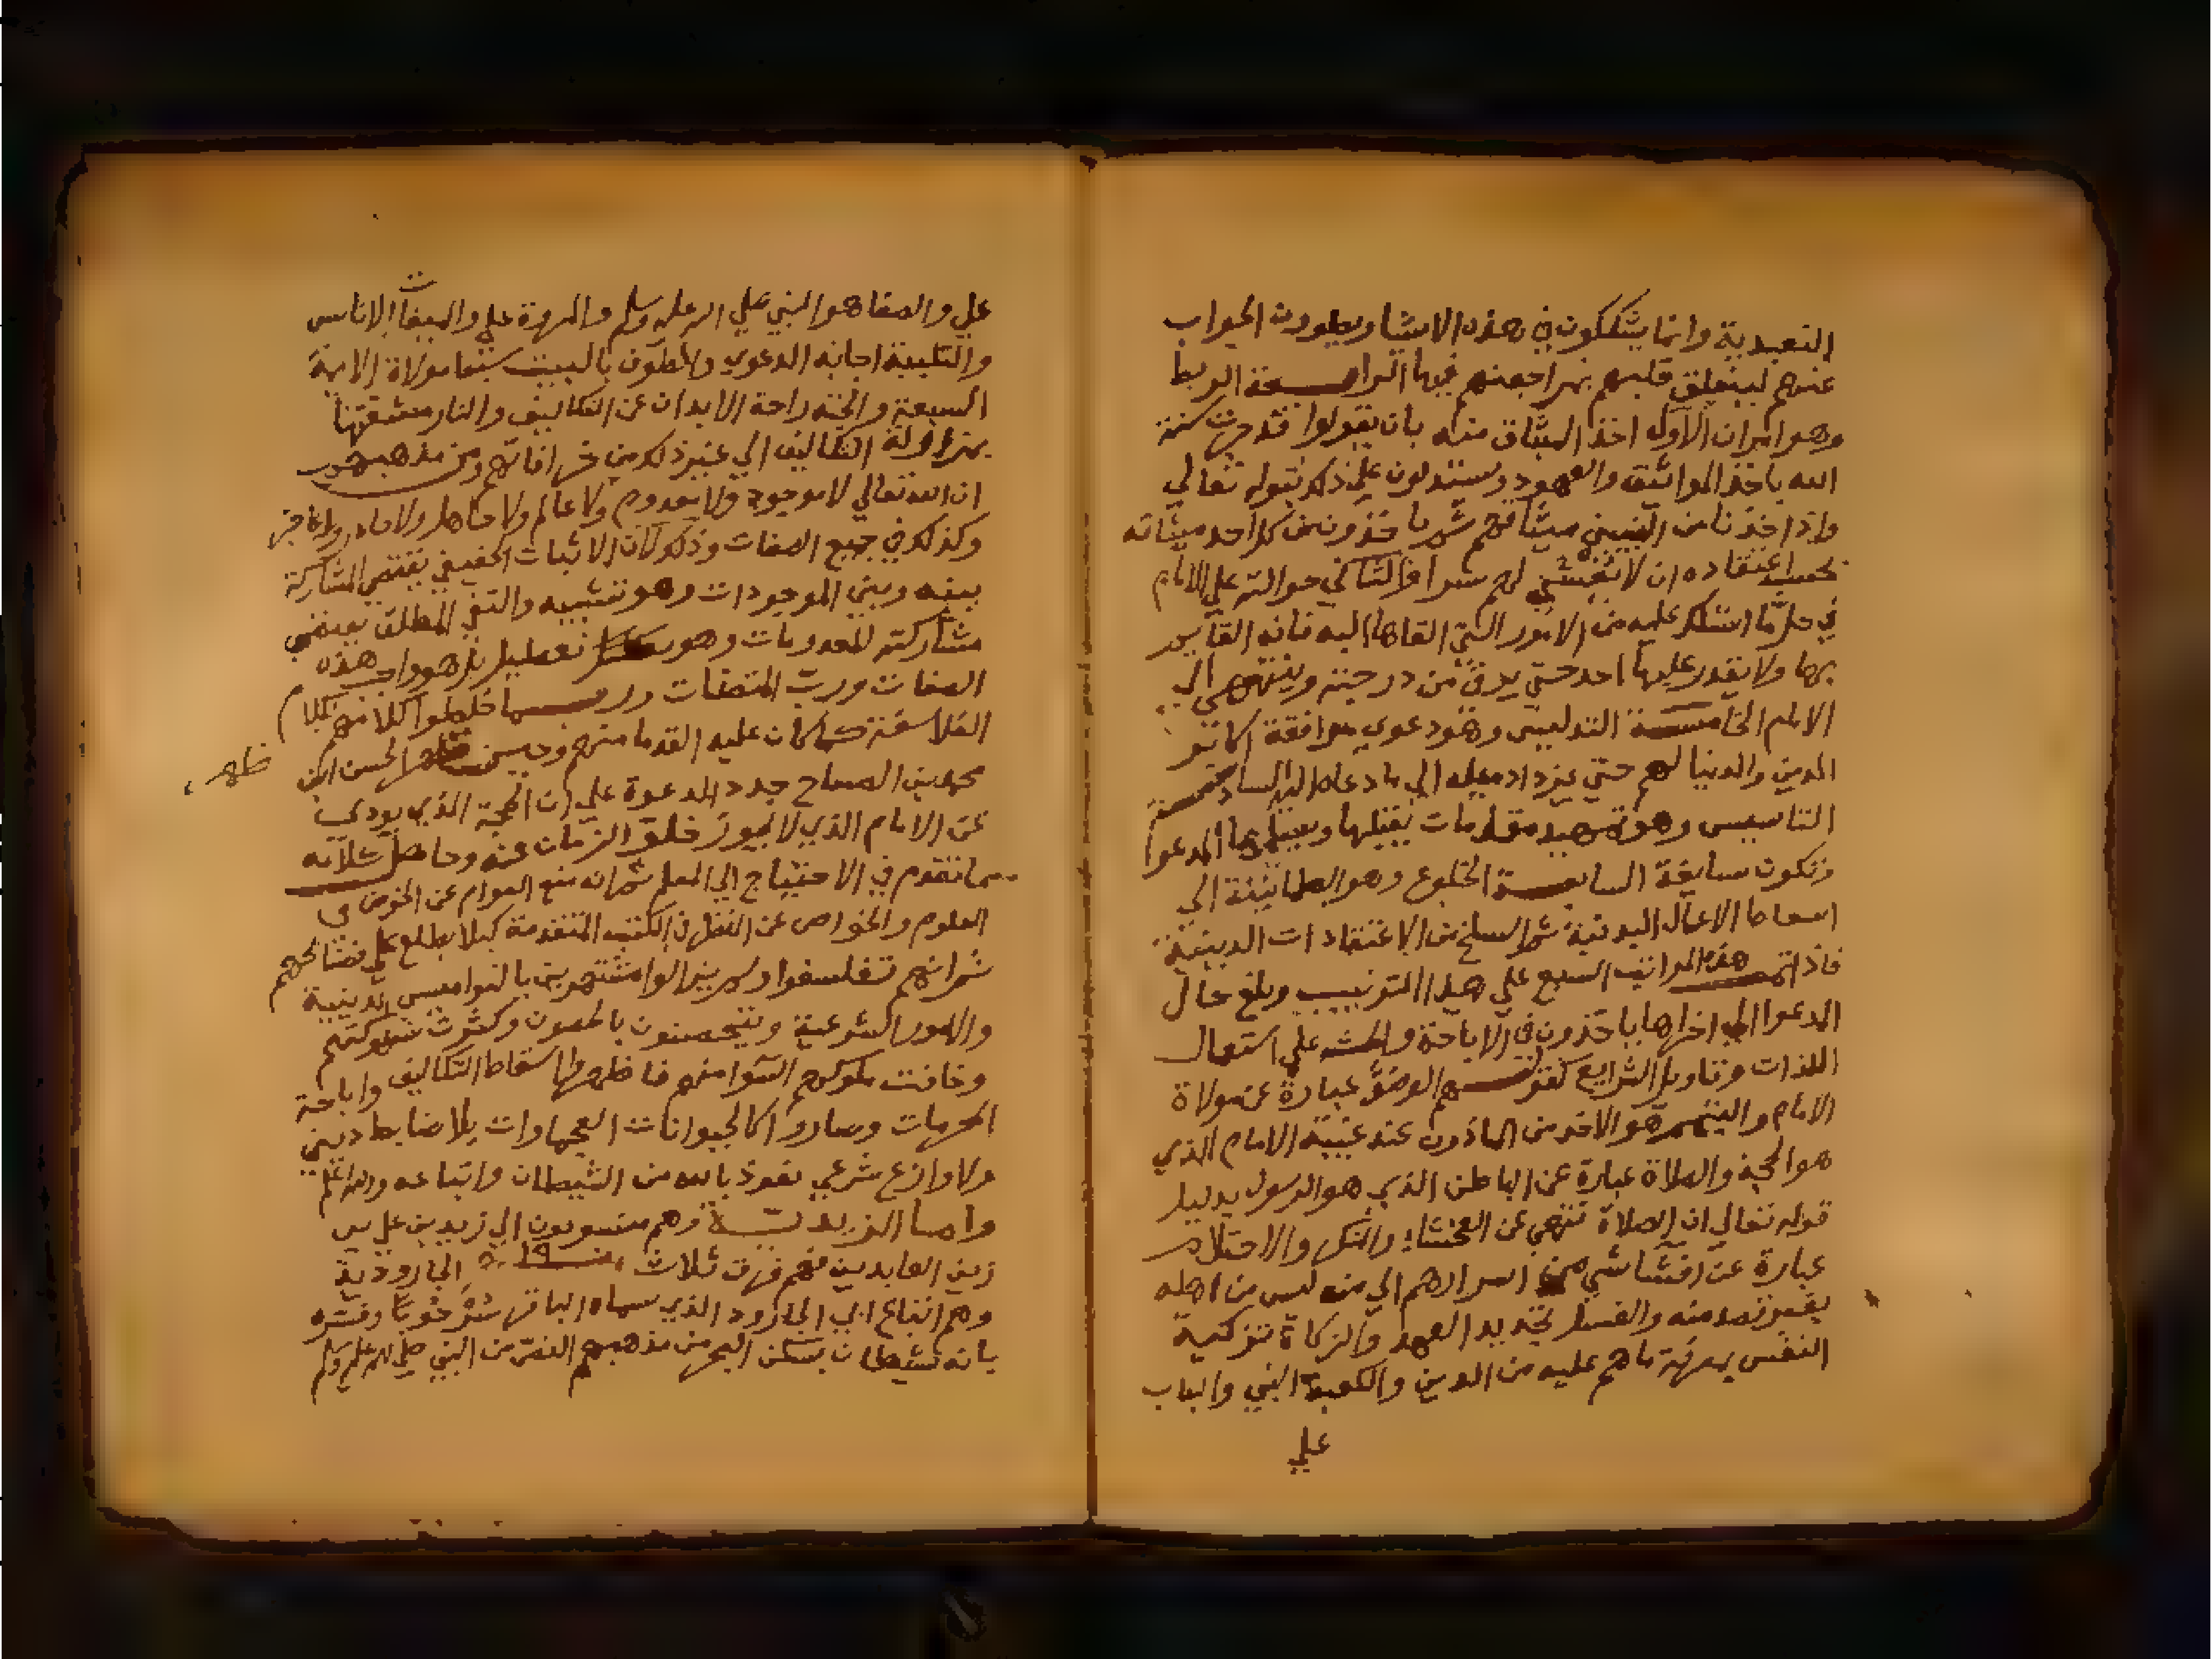 التعبدية وانما يشككون في هذه الاشيا ويطوون الجواب
عنهم ليتعلق قلبهم بمراجعتهم فيها الرابعة الربط
وهو امران الاول اخذ الميثاق منه بان يقولوا قد جرت سنة
الله باخذ المواثيق والعهود ويستدلون علي ذلك بقوله تعالي
واذ اخذنا من النبيين ميثاقهم ثم ياخذون من كل احد ميثاقه
بحسب اعتقاده ان لا يفشي لهم سرا والثاني حوالته علي الامام
في حل ما اشكل عليه من الامور التي القاها اليه فانه القايم
بها ولا يقدر عليها احد حتي يرقي من درجته وينتهي الي
الامام الخامسة التدليس وهو دعوي موافقة اكابر
الدين والدنيا لهم حتي يزداد ميله الي ما دعاه اليه السادسة
التاسيس وهو تمهيد مقدمات يقبلها ويسلمها المدعوا
وتكون سايقة السابعة الخلوع وهو الطمانينة الي
اسقاط الاعمال البدنية ثم السلخ من الاعتقادات الدينية
فاذا تمت هذه المراتب السبع علي هذا الترتيب وبلغ حال
المدعوا الي اخراها ياخذون في الاباحة والحث علي استعمال
اللذات وتاويل الشرايع كقولهم الوضؤ عبارة عن موالاة
الامام والتيمم هو الاخذ من الماذون عند غيبة الامام الذي
هو الحجة والصلاة عبارة عن الباطن الذي هو الرسول بدليل
قوله تعالي ان الصلاة تنهي عن الفحشاء والمنكر والاحتلام
عبارة عن افشا شي من اسرارهم الي من ليس من اهله
بغير قصد منه والغسل تجديد العهد والزكاة تزكية
النفس بمعرفة ما هم عليه من الدين والكعبة النبي والباب
علي
علي والصفا هو النبي صلي الله عليه وسلم والمروة علي والميقات الايناس
والتلبية اجابة الدعوي والطوف بالبيت سبعا موالاة الايمة
السبعة والجنة راحة الابدان عن التكاليف والنار مشقتها
بمزاولة التكاليف الي غير ذلك من خرافاتهم ومن مذهبهم
ان الله تعالي لا موجود ولا معدوم ولا عالم ولا جاهل ولا قادر ولا عاجز
وكذلك في جميع الصفات وذلك لان الاثبات الحقيقي يقتضي المشاركة
بينه وبين الموجودات وهو تشبيه والنفي المطلق يقتضي
مشاركته للمعدومات وهو تعطيل بل هو واهب هذه
الصفات ورب المتضادات وربما خلطوا كلامهم بكلام
الفلاسفة كما كان عليه القدما منهم وحين ظهر الحسن ابن
ظهر
محمد بن الصباح جدد الدعوة علي ان الحجة الذي يودي
عن الامام الذي لا يجوز خلو الزمان عنه وحاصل كلامه
ما تقدم في الاحتياج الي المعلم ثم انه منع العوام عن الخوض في
العلوم والخواص عن النظر في الكتب المتقدمة كيلا يطلع علي فضائحهم
ثم انهم تفلسفوا ولم يزالوا مشتهرين بالنواميس الدينية
والامور الشرعية ويتحصنون بالحصون وكثرت شوكتهم
وخافت ملوكهم السوا منهم فاظهروا اسقاط التكاليف واباحة
المحرمات وصاروا كالحيوانات العجماوات بلا ضابط ديني
ولا وازع شرعي نعوذ بالله من الشيطان واتباعه والله اعلم
واما الزيدية وهم منسوبون الي زيد بن علي بن
زين العابدين فهم فرق ثلاث الجارودية
وهم اتباع ابي الجارود الذي سماه الباقر سرحوبا وفسره
بانه شيطان يسكن البحر من مذهبهم النص من النبي صلي الله عليه وسلم